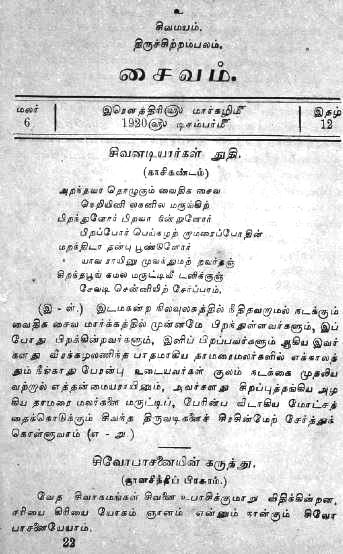 உ
சிவமயம்.
திருச்சிற்றம்பலம்.
சைவம்.
மலர் 6
இரௌத்திரி௵ மார்கழி௴
1920௵ டிசம்பர்௴
இதழ் 12
சிவனடியார்கள் துதி.
(காசிகண்டம்)
அறந்தவா தொழுகும் வைதிக சைவ
நெறியினி லகனில மருங்கிற்
பிறந்துளோர் பிறவா நின்றுளோர்
பிறப்போர் பெய்கழற் குமரைப்போதின்
மறந்திடா தன்பு பூண்டுளோர்
யாவ ராயினு முவந்துமற் றவர்தஞ்
சிறந்தபூங் கமல மருட்டிவீ டளிக்குஞ்
சேவடி சென்னியிற் சேர்ப்பாம்.
(இ - ள்.) இடமகன்ற நிலவுலகத்தில் நீதிதவறாமல் நடக்கும்
வைதிக சைவ மார்க்கத்தில் முன்னமே பிறந்துள்ளவர்களும், இப்
போது பிறக்கின்றவர்களும், இனிப் பிறப்பவர்களும் ஆகிய இவர்
களது வீரக்கழலணிந்த பாதமாகிய தாமரைமலர்களில் எக்காலத்
தும் நீங்காது பேரன்பு உடையவர்கள் குலம் நடக்கை முதலிய
வற்றுல் எத்தன்மையராயினும், அவர்களது சிறப்புத்தங்கிய அழ
கிய தாமரை மலர்களை மருட்டிப், பேரின்ப வீடாகிய மோட்சத்
தைக்கொடுக்கும் சிவந்த திருவடிகளைச் சிரசின்மேற் சேர்த்துக்
கொள்ளுவாம் (எ - று.)
சிவோபாசனையின் கருத்து.
(ஞானசித்திப் பிரகாசம்.)
வேத சிவாகமங்கள் சிவனை உபாசிக்குமாறு விதிக்கின்றன.
சரியை கிரியை யோகம் ஞானம் என்னும் நான்கும் சிவோ
பாசனையேயாம்.
23